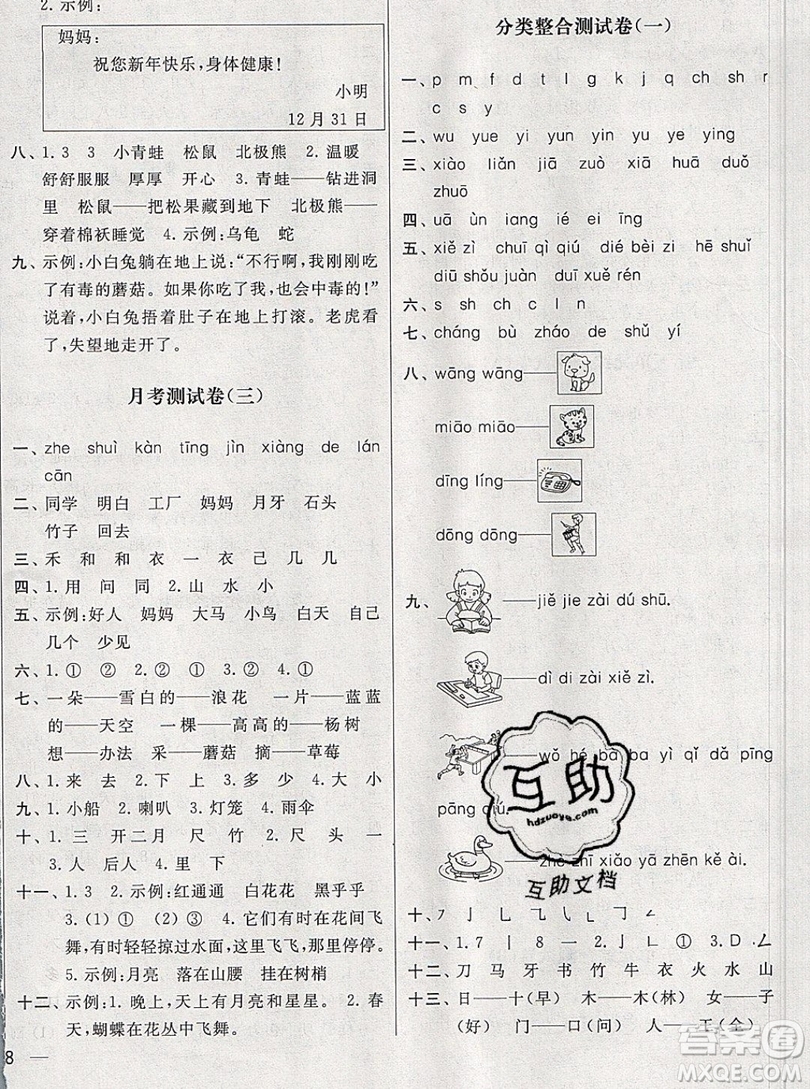 2. 示例:
妈妈:
祝您新年快乐,身体健康!
小明
12月31日
八、1. 3 3 小青蛙 松鼠 北极熊 2. 温暖
舒舒服服 厚厚 开心 3. 青蛙——钻进洞
里 松鼠——把松果藏到地下 北极熊——
穿着棉袄睡觉 4. 示例:乌龟 蛇
九、示例:小白兔躺在地上说:“不行啊,我刚刚吃
了有毒的蘑菇。如果你吃了我,也会中毒的!”
说着,小白兔捂着肚子在地上打滚。老虎看
了,失望地走开了。
月考测试卷(三)
一、zhe shuì kàn tīng jìn xiàng de lán
cān
二、同学 明白 工厂 妈妈 月牙 石头
竹子 回去
三、禾 和 和 衣 一 衣 己 几 几
四、1. 用 问 同 2. 山 水 小
五、示例:好人 妈妈 大马 小鸟 白天 自己
几个 少见
六、1. ① ② 2. ② ① 3. ② ① 4. ① ②
七、一朵——雪白的——浪花 一片——蓝蓝
的——天空 一棵——高高的——杨树
想——办法 采——蘑菇 摘——草莓
八、1. 来 去 2. 下 上 3. 多 少 4. 大 小
九、1. 小船 2. 喇叭 3. 灯笼 4. 雨伞
十、1. 三 开 二 月 尺 竹 2. 尺 头 一
3. 人 后人 4. 里 下
十一、1. 3 2. 示例:红通通 白花花 黑乎乎
3. (1) ① (2) ③ 4. 它们有时在花间飞
舞,有时轻轻掠过水面,这里飞飞,那里停停。
5. 示例:月亮 落在山腰 挂在树梢
十二、示例:1. 晚上,天上有月亮和星星。 2. 春
天,蝴蝶在花丛中飞舞。
8 —
分类整合测试卷(一)
一、p m f d t l g j q ch sh r
c s y
二、wu yue yi yun yin yu ye ying
三、xiào liǎn jiā zuò xiā huā duǒ
zhuō
四、uā ùn iang ié ei īng
五、xiě zì chuī qì qiú dié bèi zi hē shuǐ
diū shǒu juàn duī xuě rén
六、s sh c l n
七、cháng bù zháo de shǔ yí
八、wāng wāng——
miāo miāo——
dīng líng——
dōng dōng——
九、——jiě jie zài dú shū.
——dì di zài xiě zì.
——wǒ hé bà ba yì qǐ dǎ pīng
pāng qiú.
——zhè zhī xiǎo yā zhēn kě ài.
十、㇆ 亅 乚 ㇄ 𠃌 𠃋
十一、1. 7 丨 | 8 一 2. 亅 ㇄ ① 3. D ㄥ
十二、刀 马 牙 书 竹 牛 衣 火 水 山
十三、日——十(早) 木——木(林) 女——子
(好) 门——口(问) 人——王(全)
互助
hdzuoye.com
互助文档
答案圈
MXQE.COM